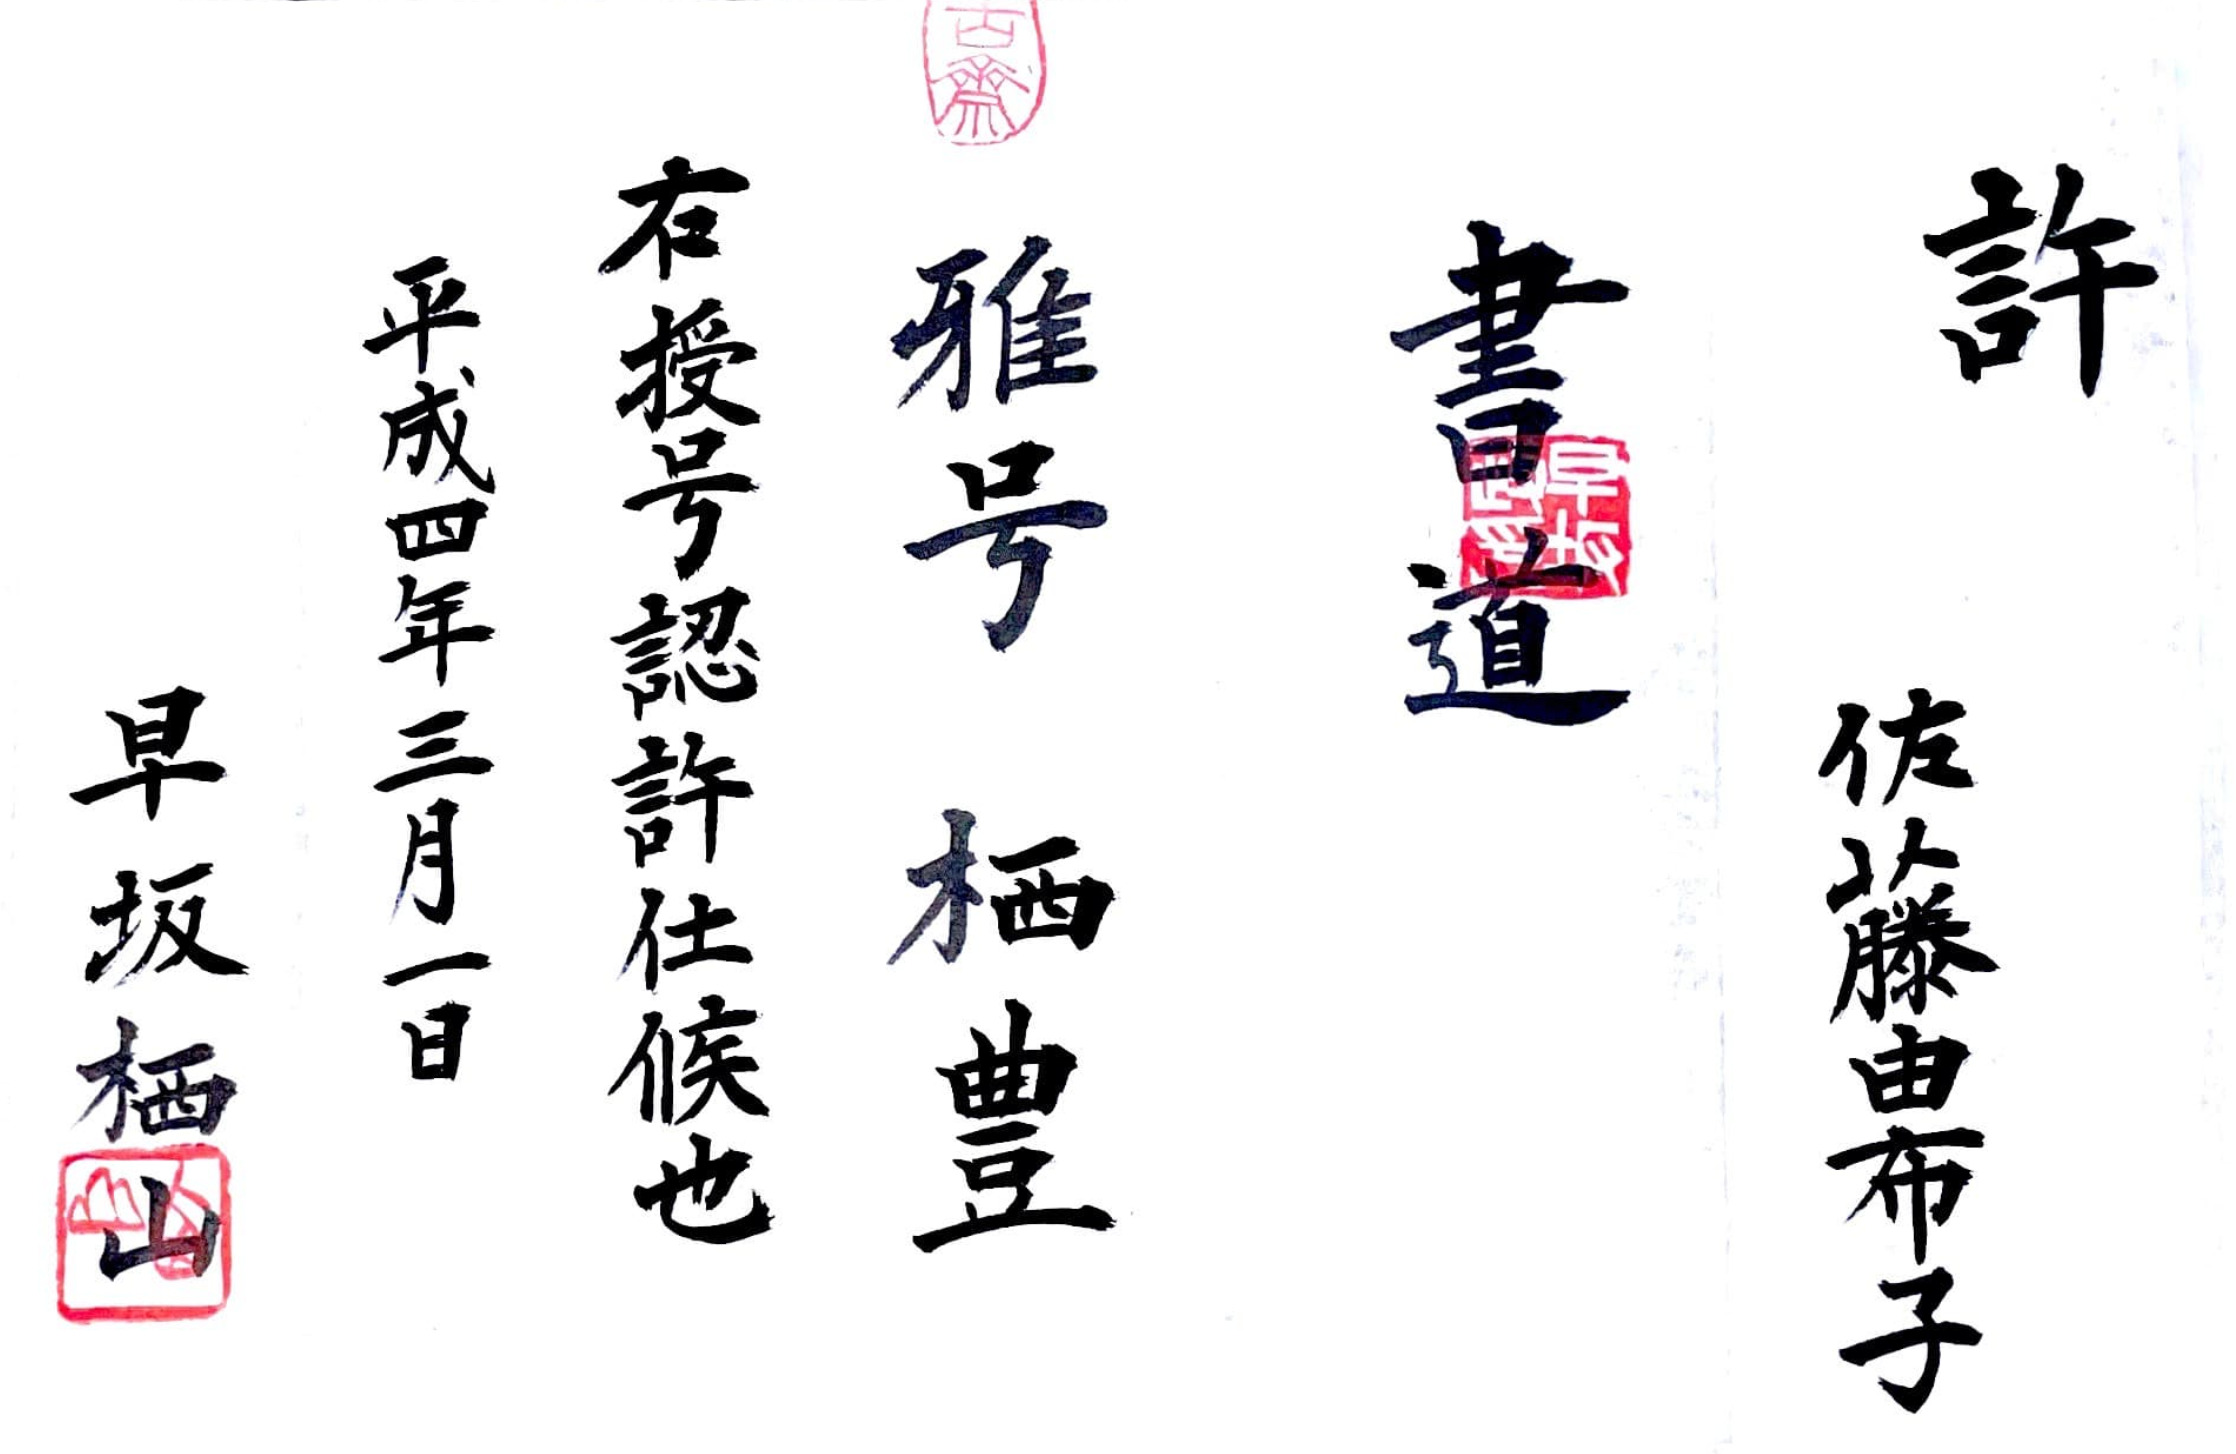 許
佐藤由布子
書道
雅号 栖豊
右授号認許仕候也
平成四年三月一日
早坂栖山